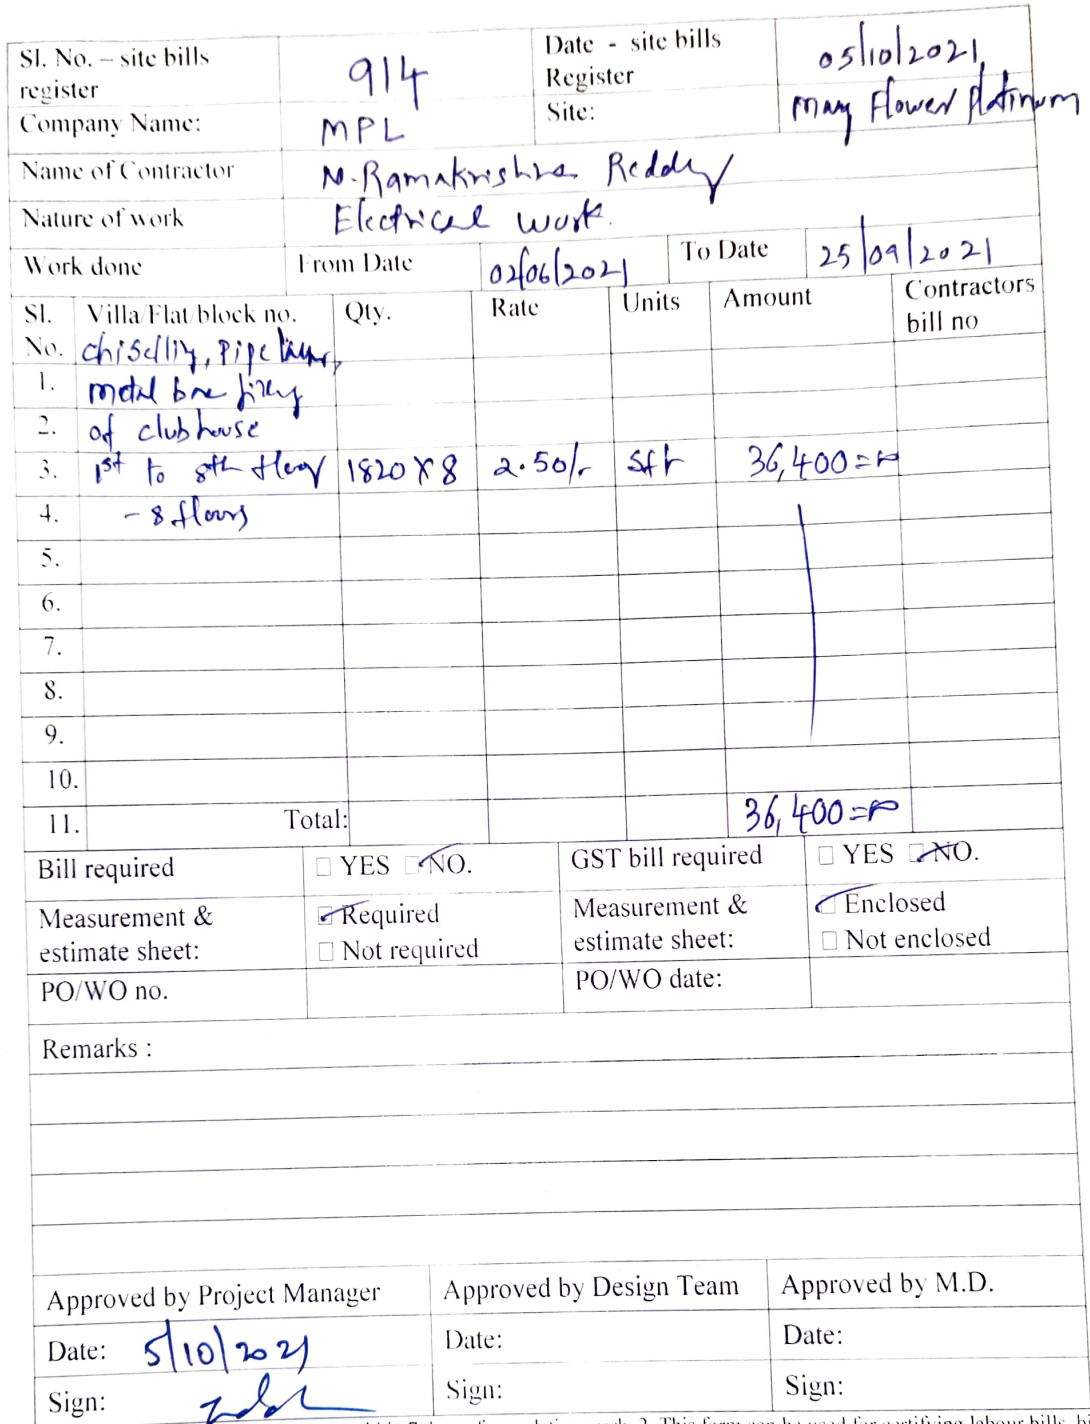 Sl. No. – site bills register 914 Date - site bills Register 05/10/2021
Company Name: MPL Site: May Flower Platinum
Name of Contractor N. Ramakrishna Reddy
Nature of work Electrical work.
Work done From Date 02/06/2021 To Date 25/09/2021
Sl. No. Villa/Flat/block no. Qty. Rate Units Amount Contractors bill no
chiselliy, Pipe
1. metal box fixing
2. of clubhouse
3. 1st to 8th floor 1820 X 8 2.50/- Sft 36,400=00
4. - 8 floors
5.
6.
7.
8.
9.
10.
11. Total: 36,400=00
Bill required YES NO. GST bill required YES NO.
Measurement & estimate sheet: Required Measurement & estimate sheet: Enclosed
Not required Not enclosed
PO/WO no. PO/WO date:
Remarks :
Approved by Project Manager Approved by Design Team Approved by M.D.
Date: 5/10/2021 Date: Date:
Sign: Sign: Sign: